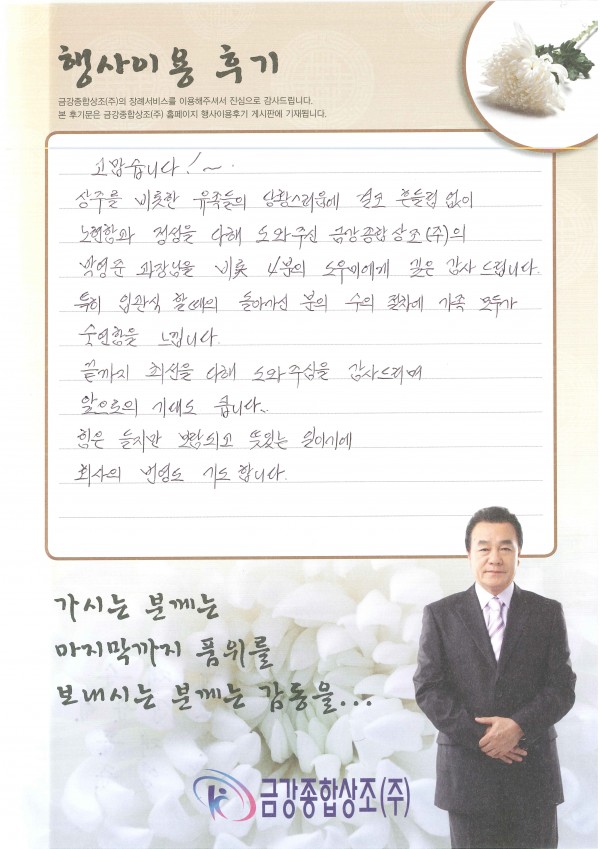 행사이용 후기
금강종합상조(주)의 장례서비스를 이용해주셔서 진심으로 감사드립니다.
본 후기문은 금강종합상조(주) 홈페이지 행사이용후기 게시판에 기재됩니다.
고맙습니다!~
상주를 비롯한 유족들의 당황스러움에 결코 흔들림 없이
노련함과 정성을 다해 도와주신 금강종합상조(주)의
박영준 과장님을 비롯 4분의 도우미에게 깊은 감사드립니다.
특히 입관식 할때의 돌아가신 분의 수의 절차에 가족 모두가
숙연함을 느낍니다.
끝까지 최선을 다해 도와주심을 감사드리며
앞으로의 기대도 큽니다..
힘은 들지만 보람되고 뜻있는 일이기에
회사의 번영도 기도합니다.
가시는 분께는
마지막까지 품위를
보내시는 분께는 감동을...
금강종합상조(주)